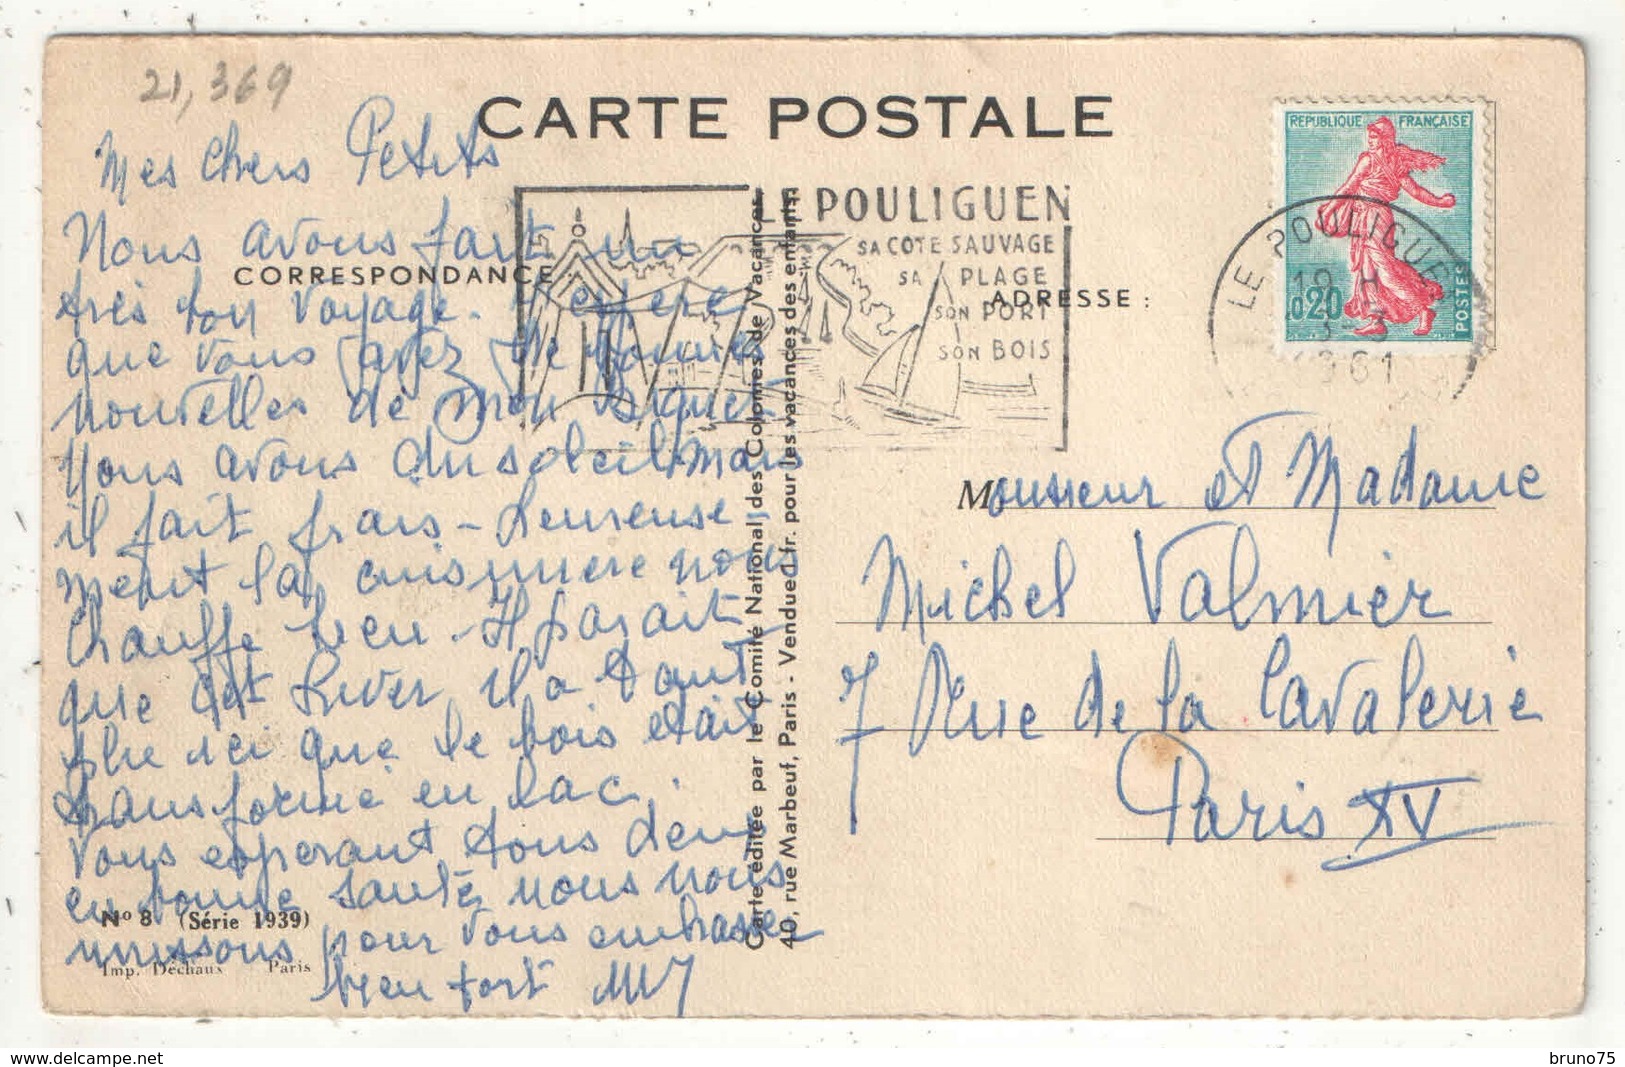 21,369
CARTE POSTALE
Mes chers Petits
Nous avons fait un
très bon voyage. J'espère
que vous avez de bonnes
nouvelles de mon
Nous avons du soleil mais
il fait frais - heureuse-
ment la cuisinière nous
chauffe bien - Il parait
que cet hiver il a tant
plu ici que le bois était
transformé en lac.
Vous espérant tous deux
en bonne santé nous nous
unissons pour vous embrasser
bien fort
CORRESPONDANCE :
ADRESSE :
LE POULIGUEN
SA COTE SAUVAGE
SA PLAGE
SON PORT
SON BOIS
REPUBLIQUE FRANÇAISE
0,20
POSTES
LE POULIGUEN
1961
Monsieur et Madame
Michel Valmier
7 Rue de la Cavalerie
Paris XV
Carte éditée par le Comité National des Colonies de Vacances
40, rue Marbeuf, Paris - Vendue 1 fr. pour les vacances des enfants
No 8 (Série 1939)
Imp. Déchaux Paris
www.delcampe.net
bruno75